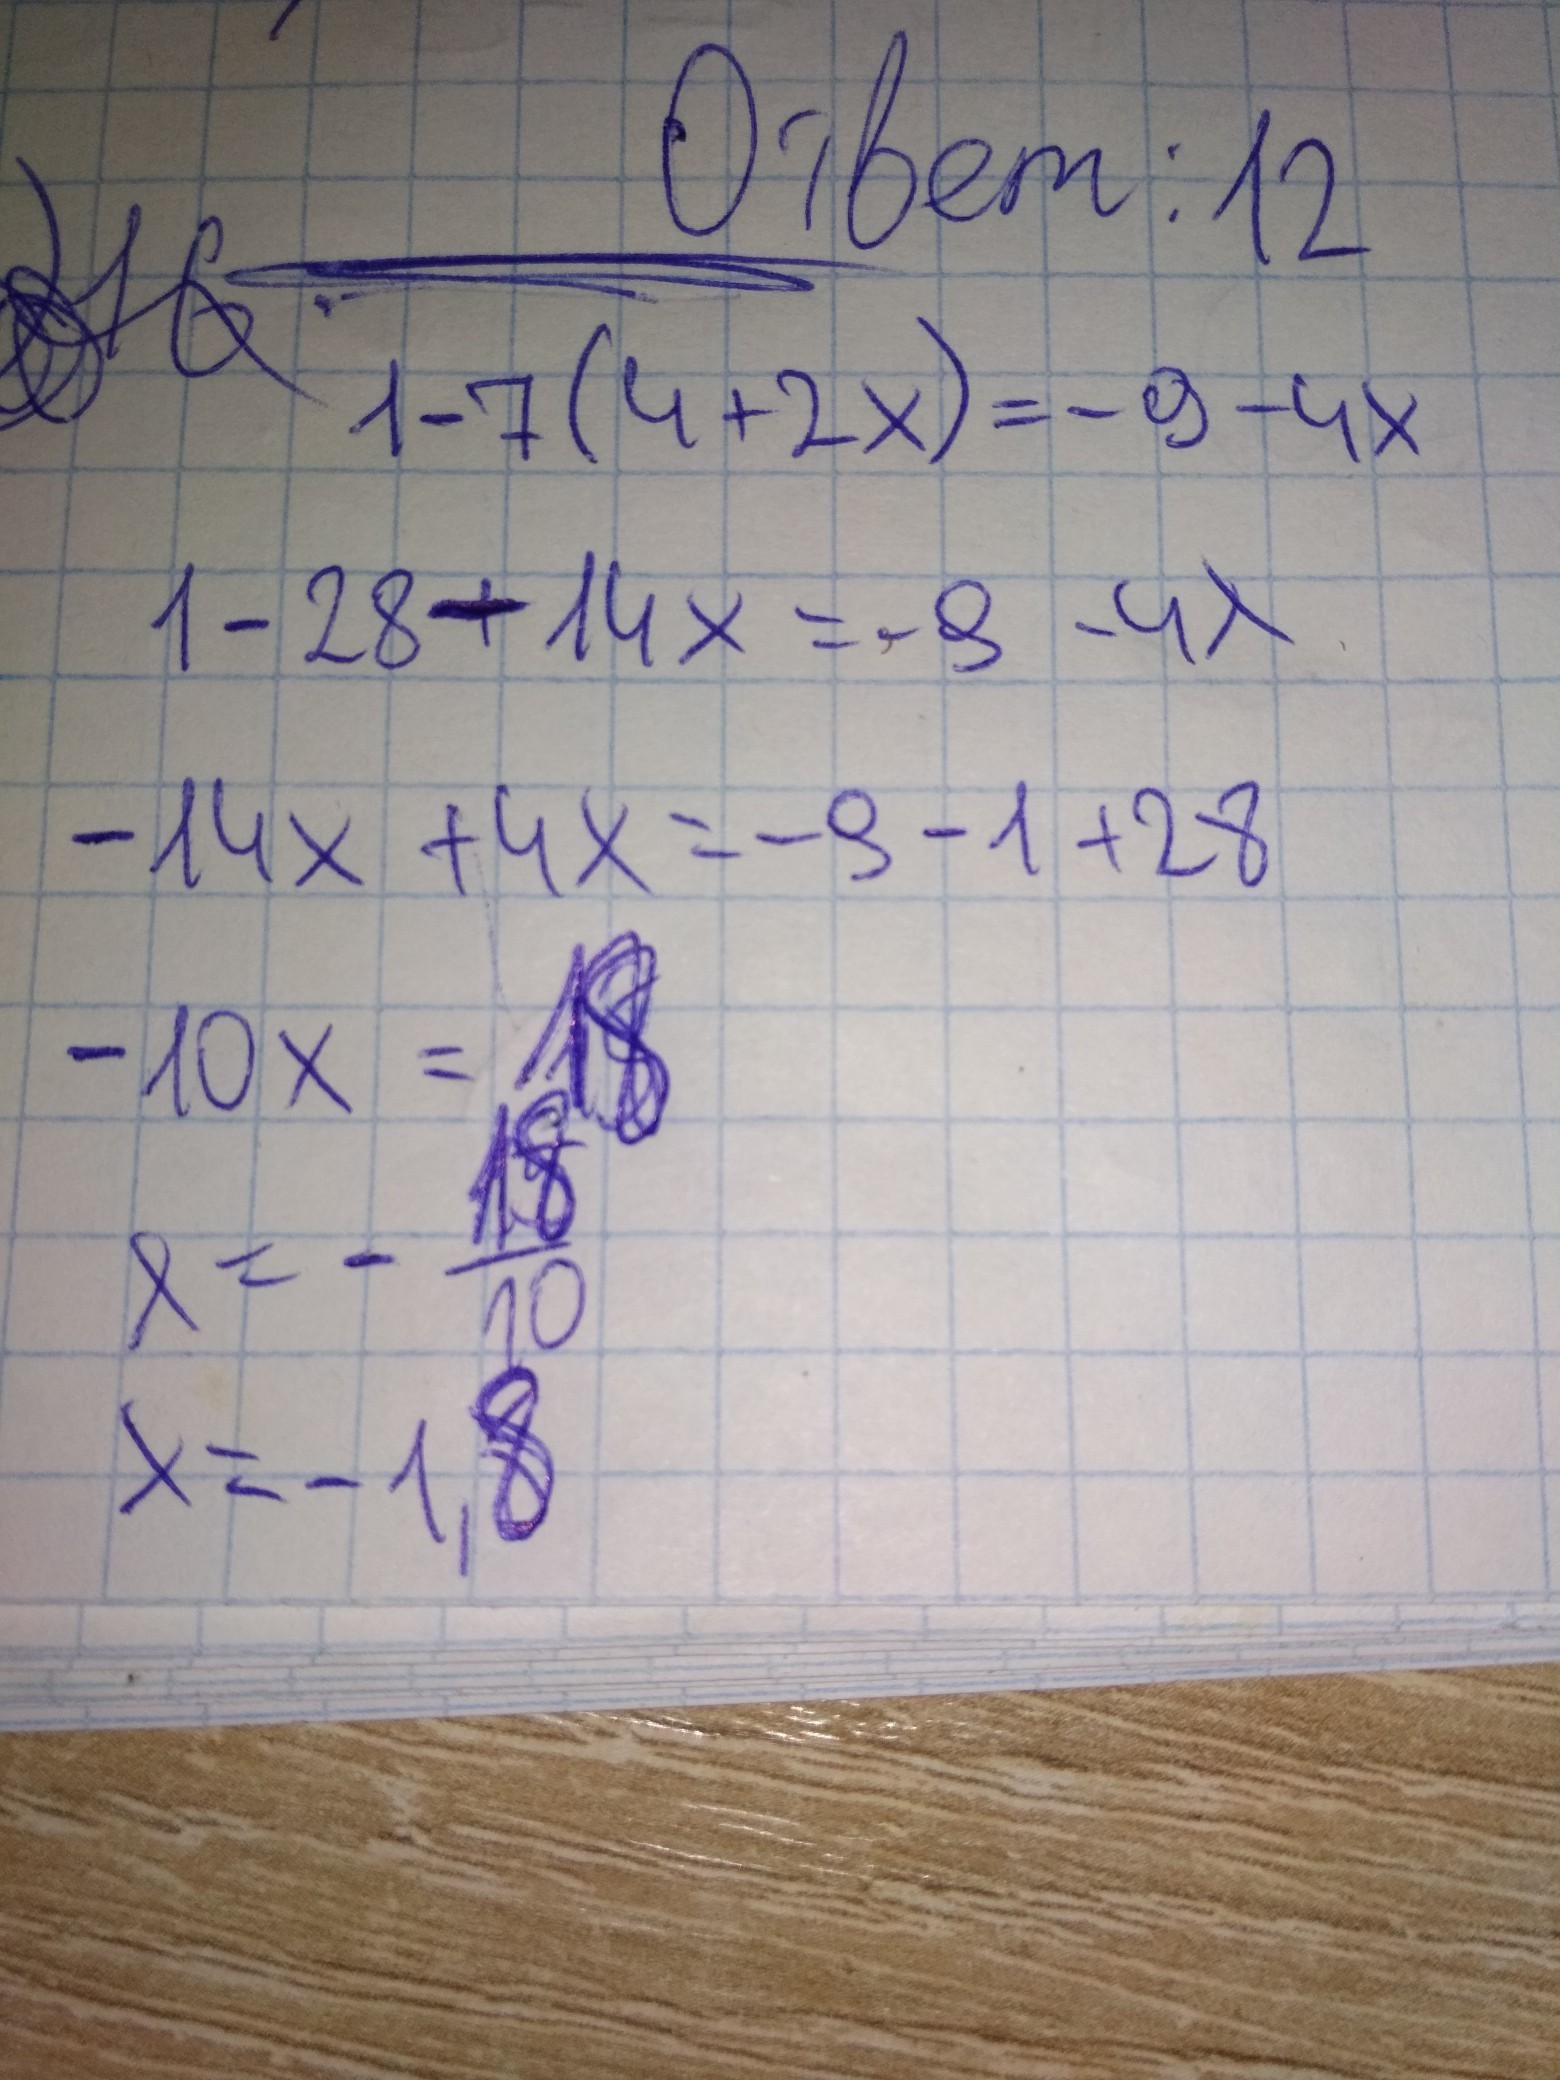 Ответ: 12
16.
1-7(4+2x)=-9-4x
1-28-14x=-9-4x
-14x+4x=-9-1+28
-10x=18
x=-18/10
x=-1,8